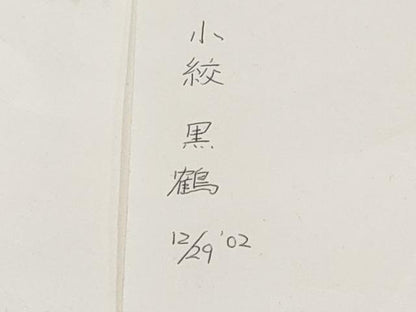 小絞 黒鶴
12/29 '02